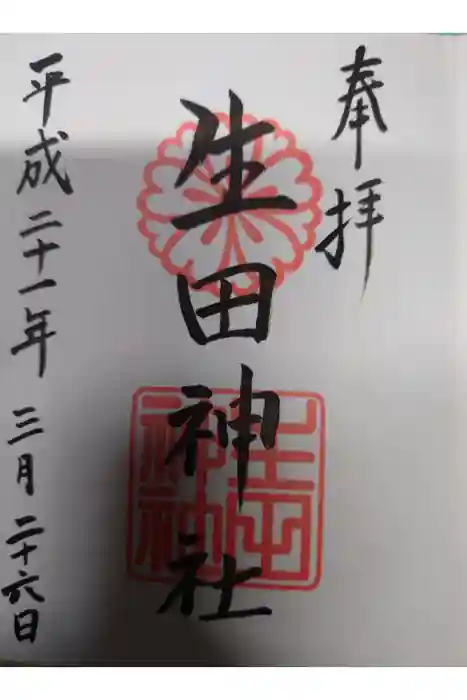 奉拝
生田神社
生田
神社
平成二十一年三月二十六日